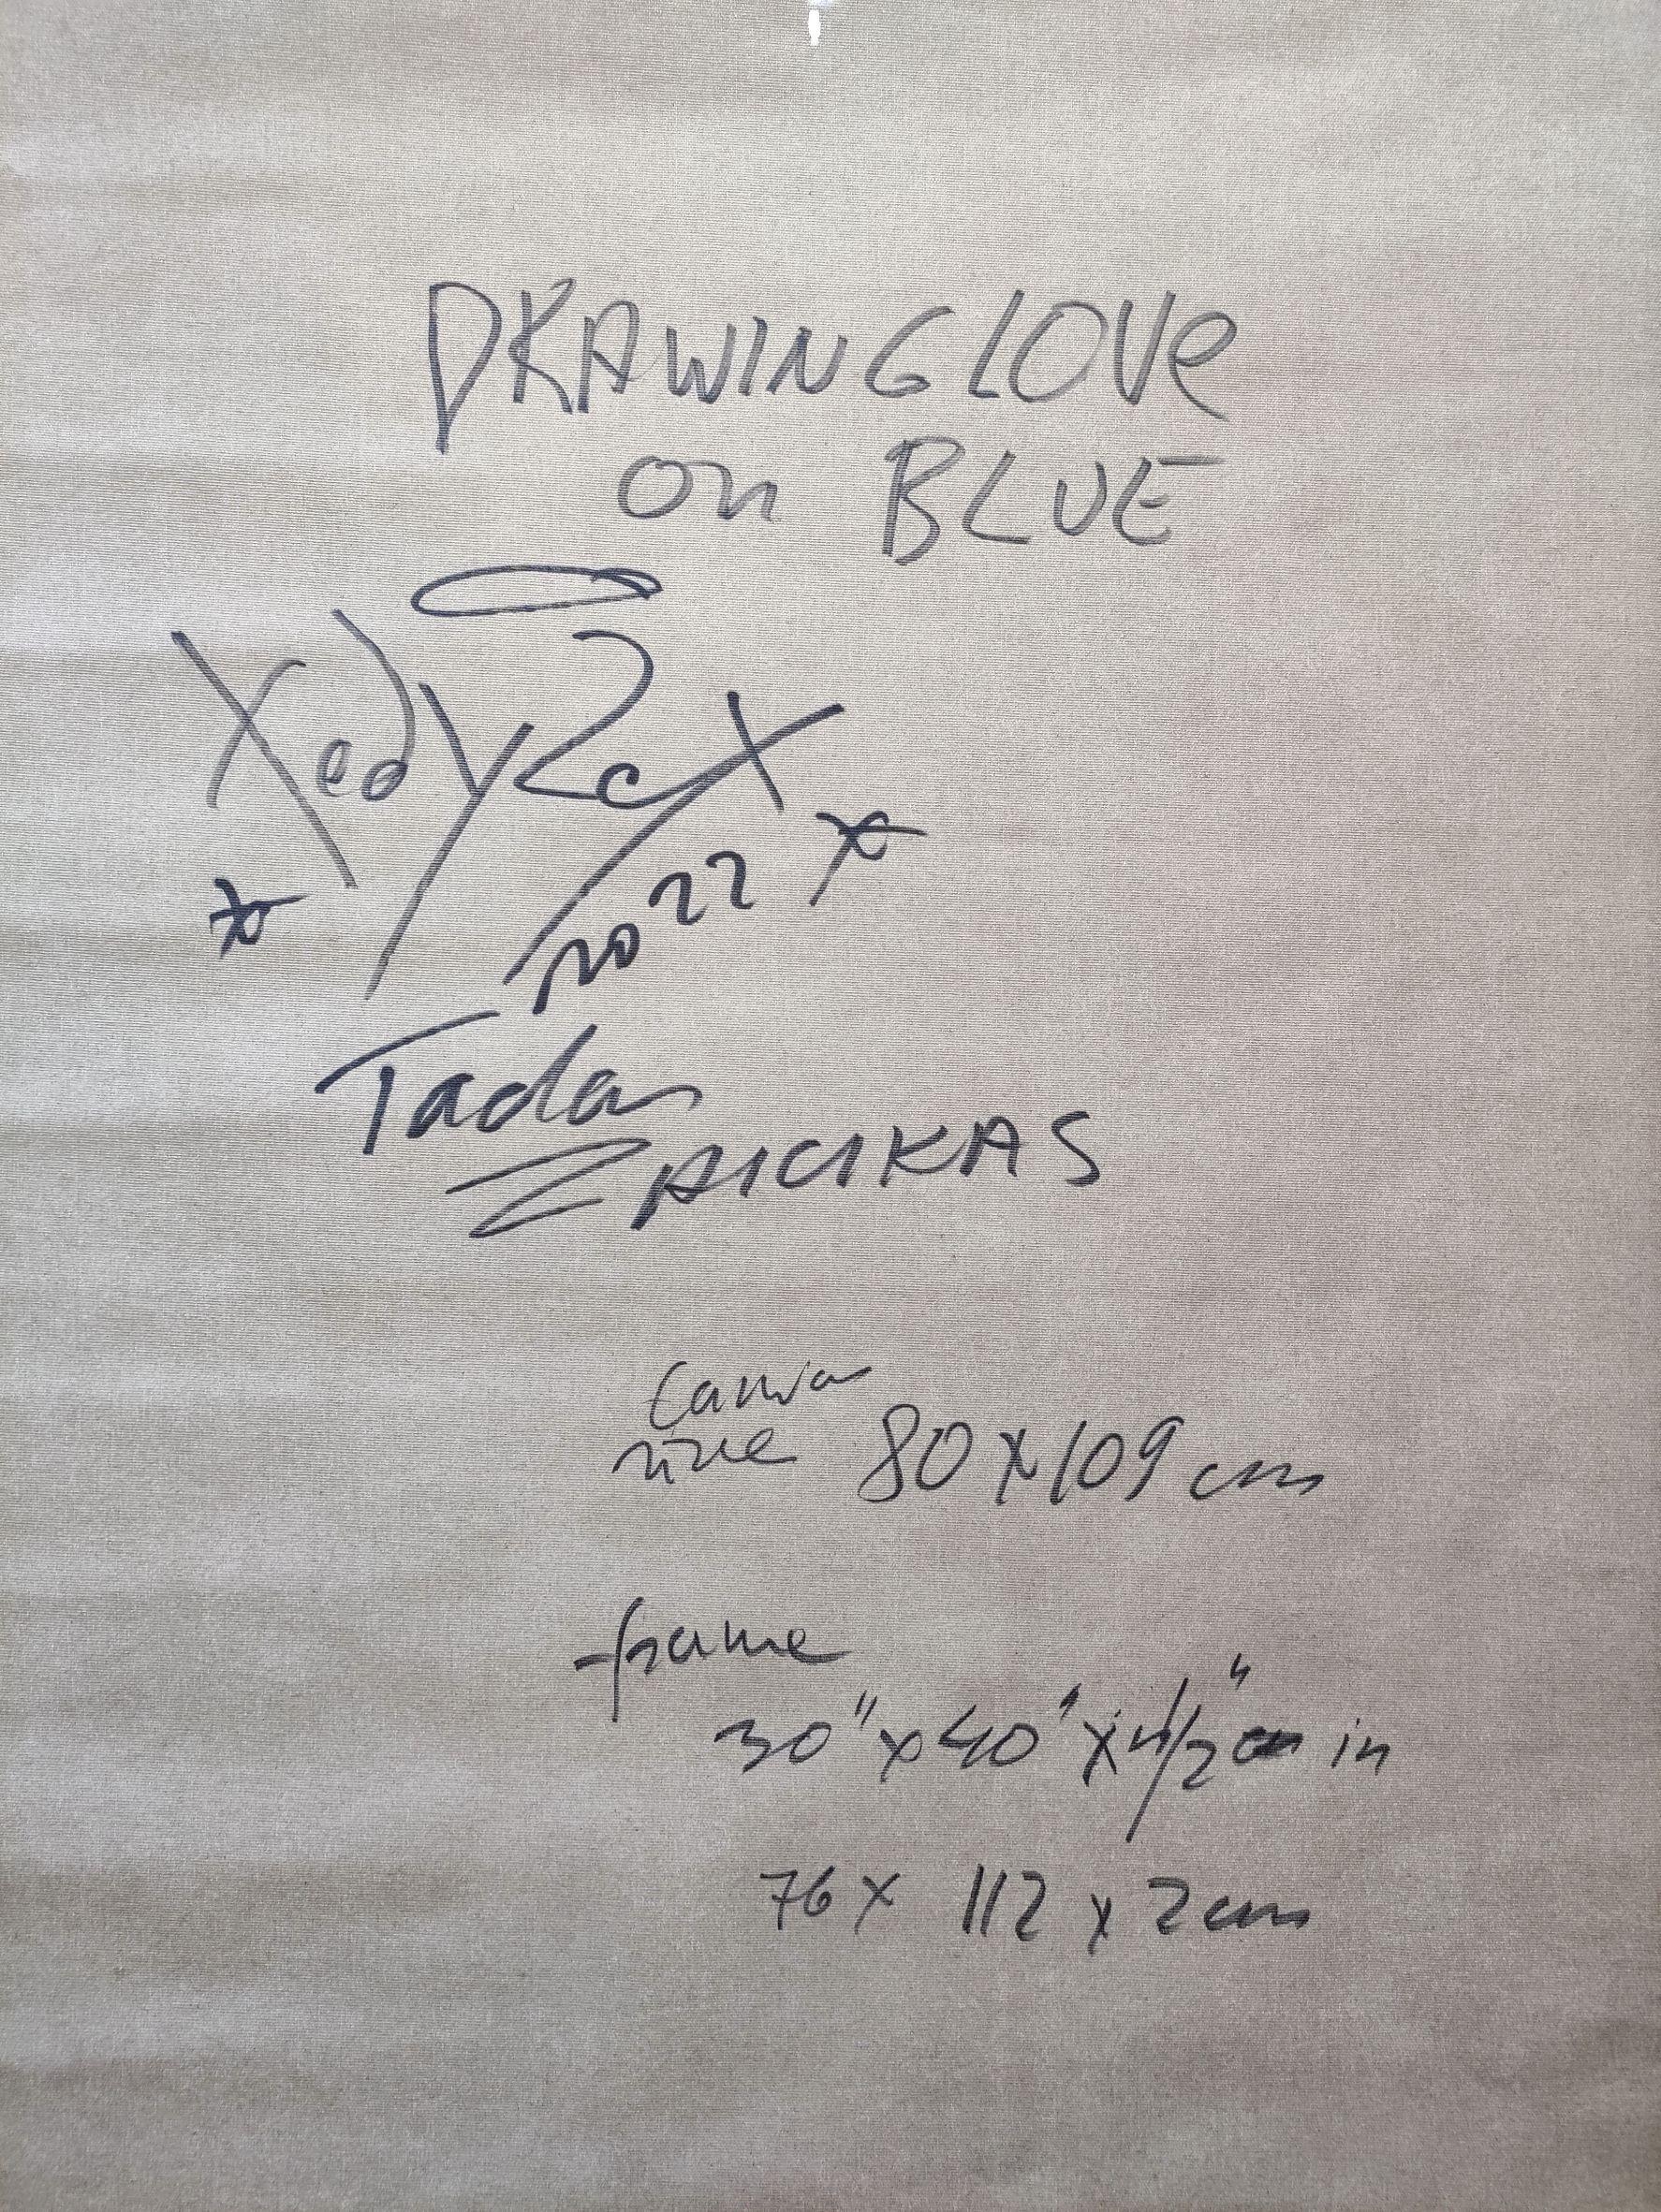 DRAWING LOVE
on BLUE
2022
Tadas
ZAICIKAS
Canvas
size 80 x 109 cm
frame
30" x 40" x 1/2" in
76 x 112 x 2 cm